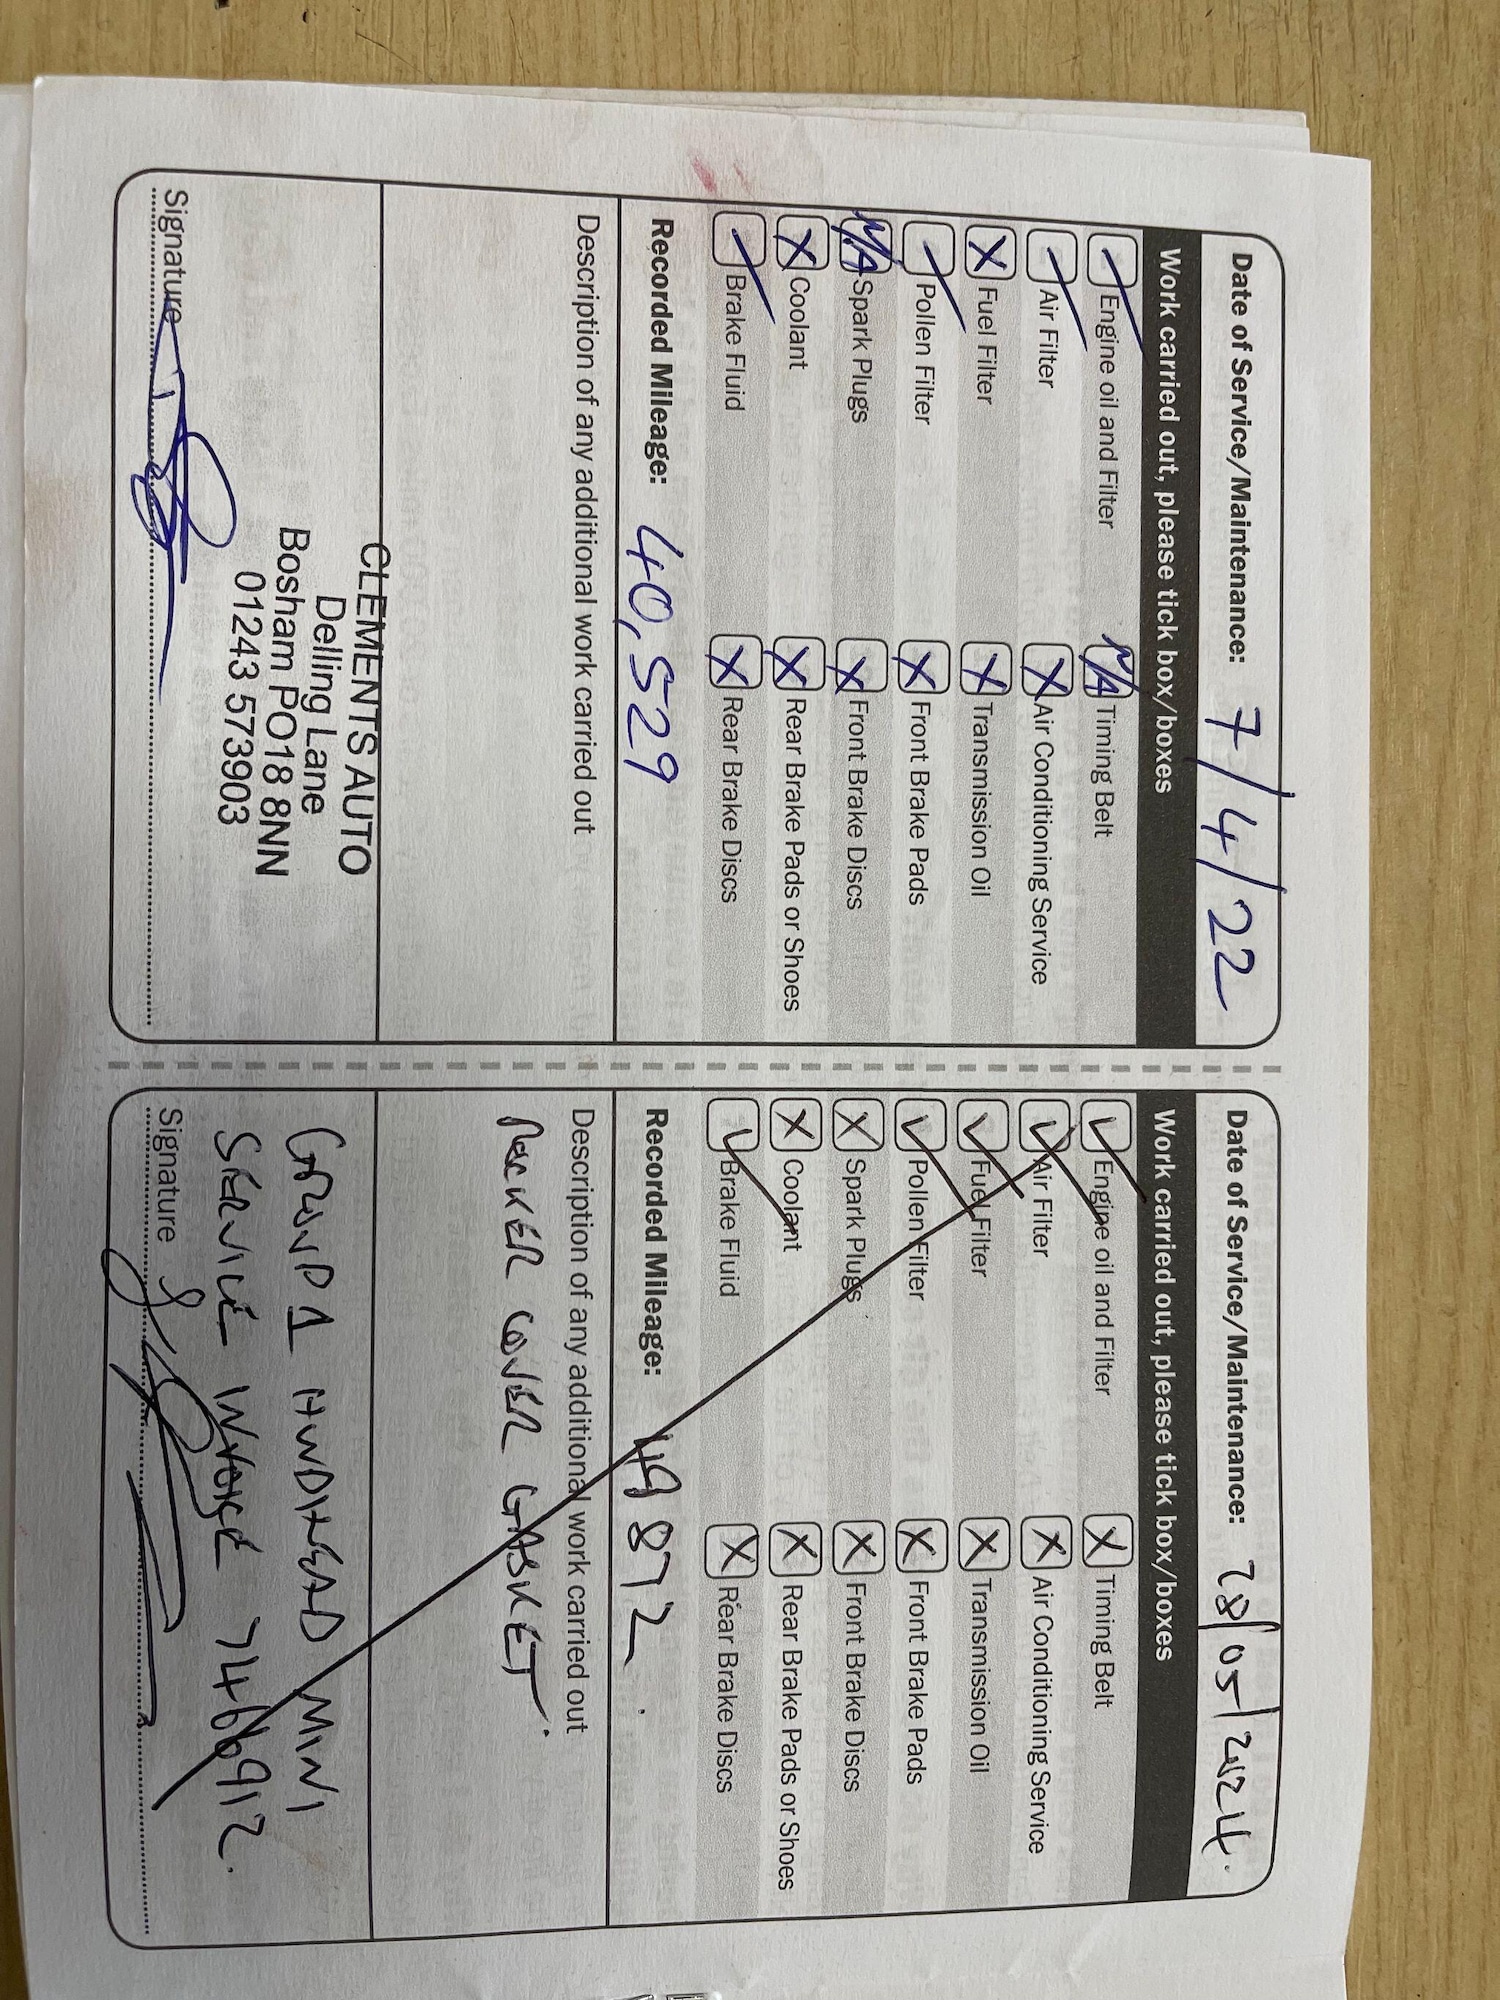 Date of Service/Maintenance: 7/4/22
Work carried out, please tick box/boxes
Engine oil and Filter N/A Timing Belt
Air Filter X Air Conditioning Service
X Fuel Filter X Transmission Oil
Pollen Filter X Front Brake Pads
N/A Spark Plugs X Front Brake Discs
X Coolant X Rear Brake Pads or Shoes
Brake Fluid X Rear Brake Discs
Recorded Mileage: 40,529
Description of any additional work carried out
CLEMENTS AUTO
Delling Lane
Bosham PO18 8NN
01243 573903
Signature
Date of Service/Maintenance: 28/05/2024.
Work carried out, please tick box/boxes
Engine oil and Filter X Timing Belt
Air Filter X Air Conditioning Service
Fuel Filter X Transmission Oil
Pollen Filter X Front Brake Pads
X Spark Plugs X Front Brake Discs
X Coolant X Rear Brake Pads or Shoes
Brake Fluid X Rear Brake Discs
Recorded Mileage: 49872.
Description of any additional work carried out
ROCKER COVER GASKET.
GROUP 1 HINDHEAD MINI
SERVICE INVOICE 7466912.
Signature